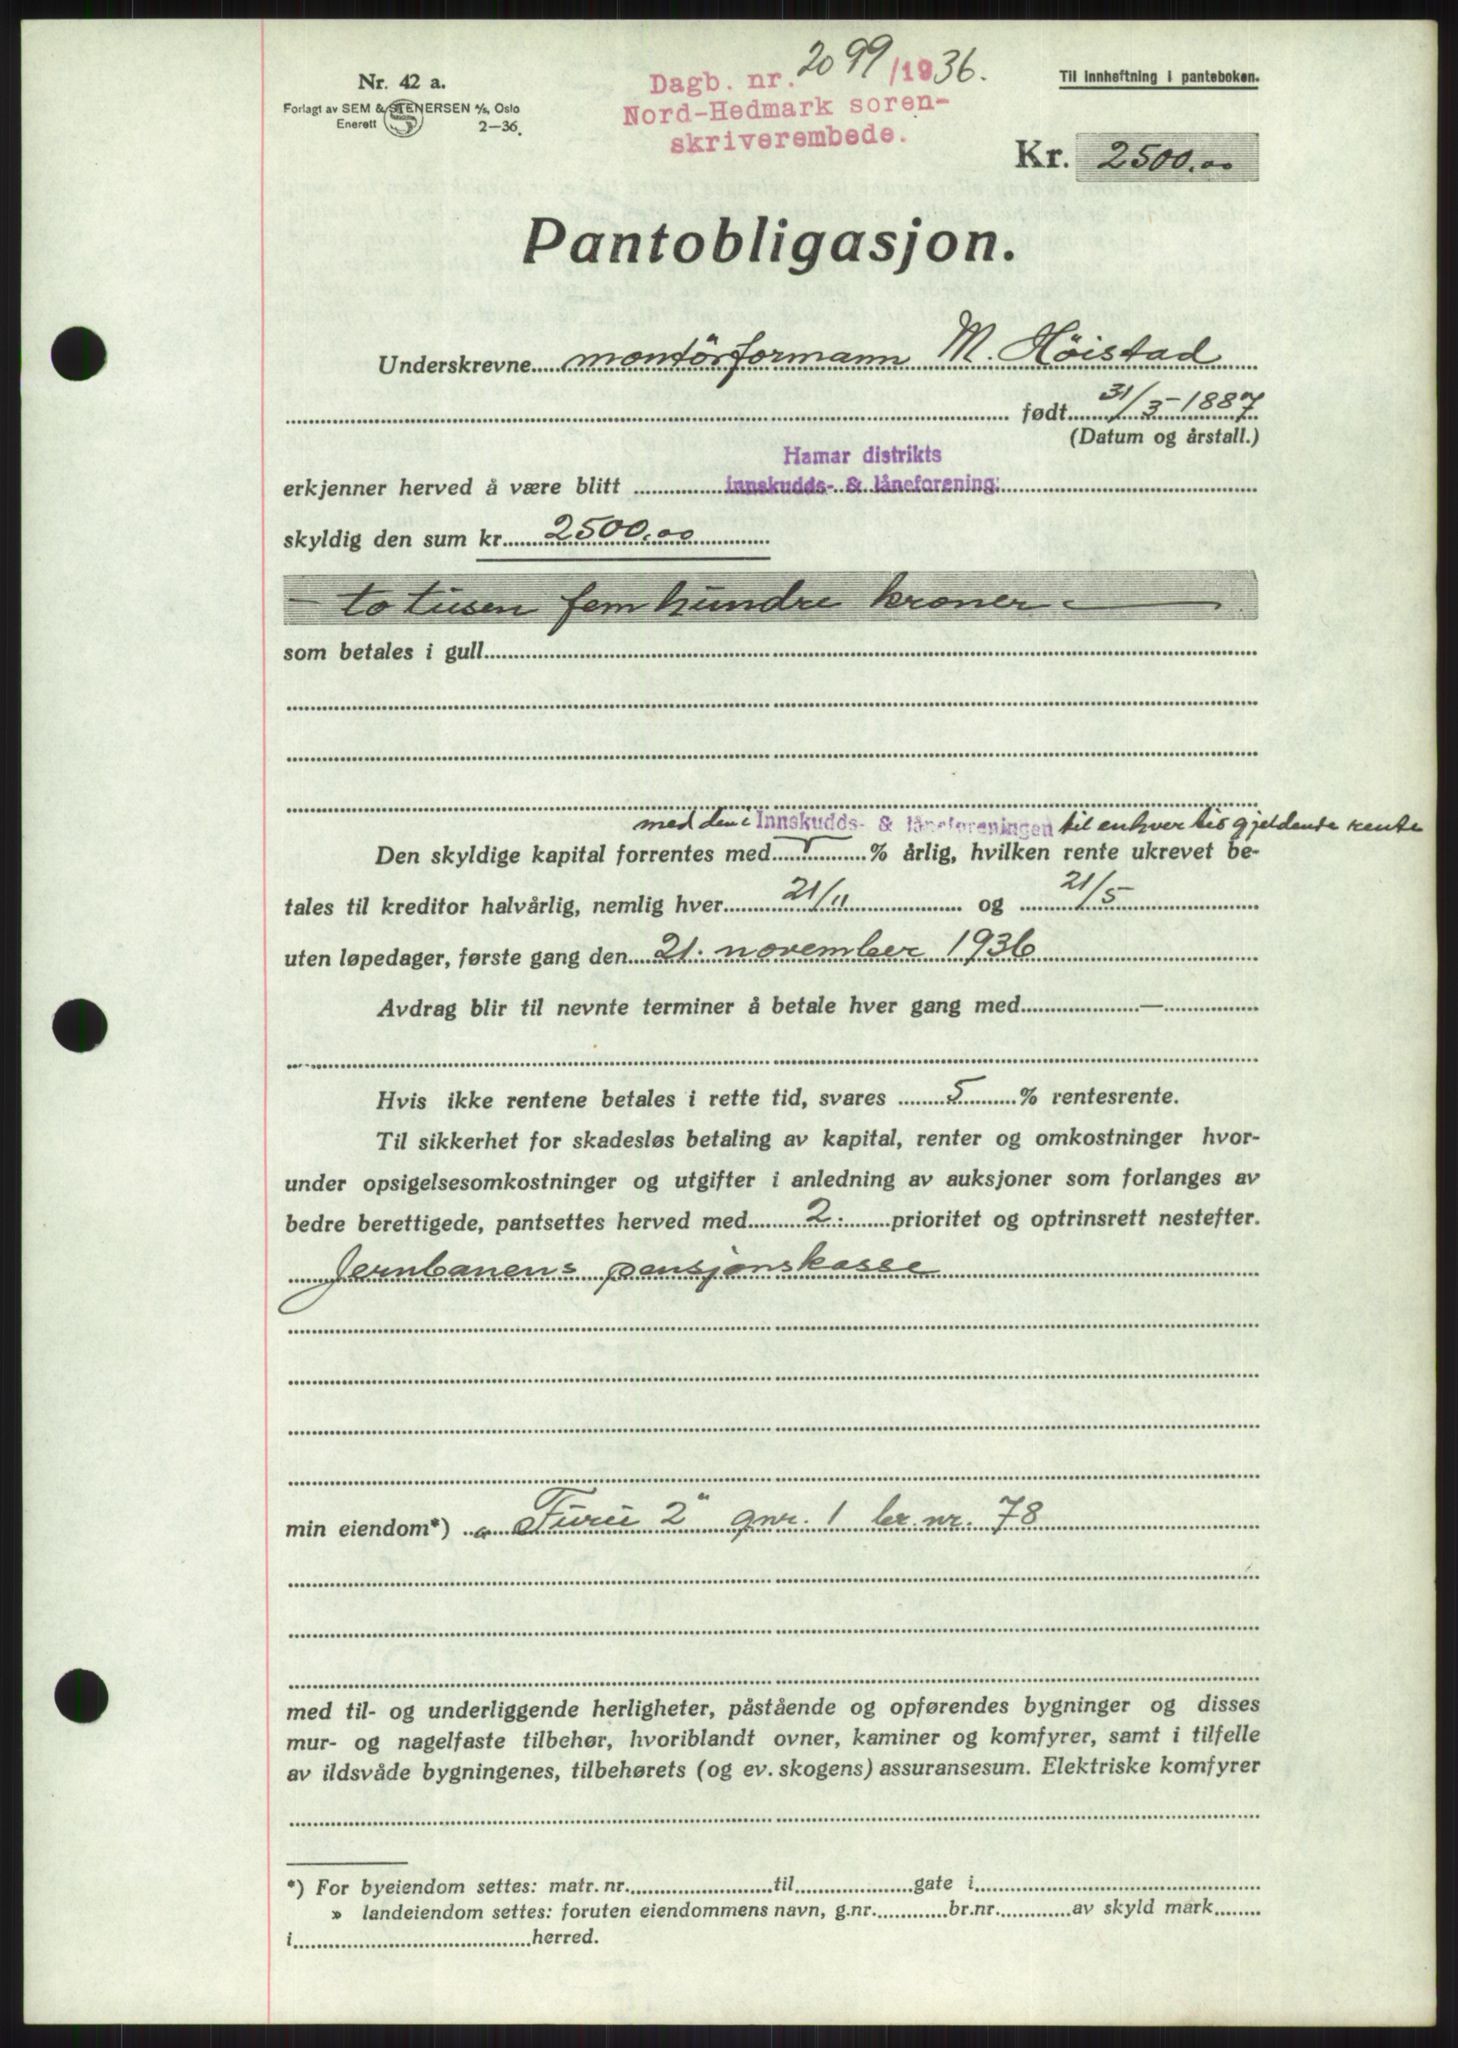 Nr. 42 a.
Forlagt av SEM & STENERSEN A/S, Oslo
Enerett 2—36.
Dagb. nr. 2099/1936.
Nord-Hedmark soren-
skriverembede.
Til innheftning i panteboken.
Kr. 2500.00
Pantobligasjon.
Underskrevne montörformann M. Höistad
født 31/3-1887
(Datum og årstall.)
Hamar distrikts
erkjenner herved å være blitt innskudds- & låneforening.
skyldig den sum kr. 2500.00
— to tusen fem hundre kroner —
som betales i gull
med den i Innskudds- & låneforeningen til enhver tid gjeldende rente
Den skyldige kapital forrentes med % årlig, hvilken rente ukrevet be-
tales til kreditor halvårlig, nemlig hver 21/11 og 21/5
uten løpedager, første gang den 21. november 1936
Avdrag blir til nevnte terminer å betale hver gang med —
Hvis ikke rentene betales i rette tid, svares 5 % rentesrente.
Til sikkerhet for skadesløs betaling av kapital, renter og omkostninger hvor-
under opsigelsesomkostninger og utgifter i anledning av auksjoner som forlanges av
bedre berettigede, pantsettes herved med 2: prioritet og optrinsrett nestefter.
Jernbanens pensjonskasse
min eiendom*) „Furu 2" gnr. 1 br. nr. 78
med til- og underliggende herligheter, påstående og opførendes bygninger og disses
mur- og nagelfaste tilbehør, hvoriblandt ovner, kaminer og komfyrer, samt i tilfelle
av ildsvåde bygningenes, tilbehørets (og ev. skogens) assuransesum. Elektriske komfyrer
*) For byeiendom settes: matr. nr. til gate i
» landeiendom settes: foruten eiendommens navn, g.nr. br.nr. av skyld mark
i herred.